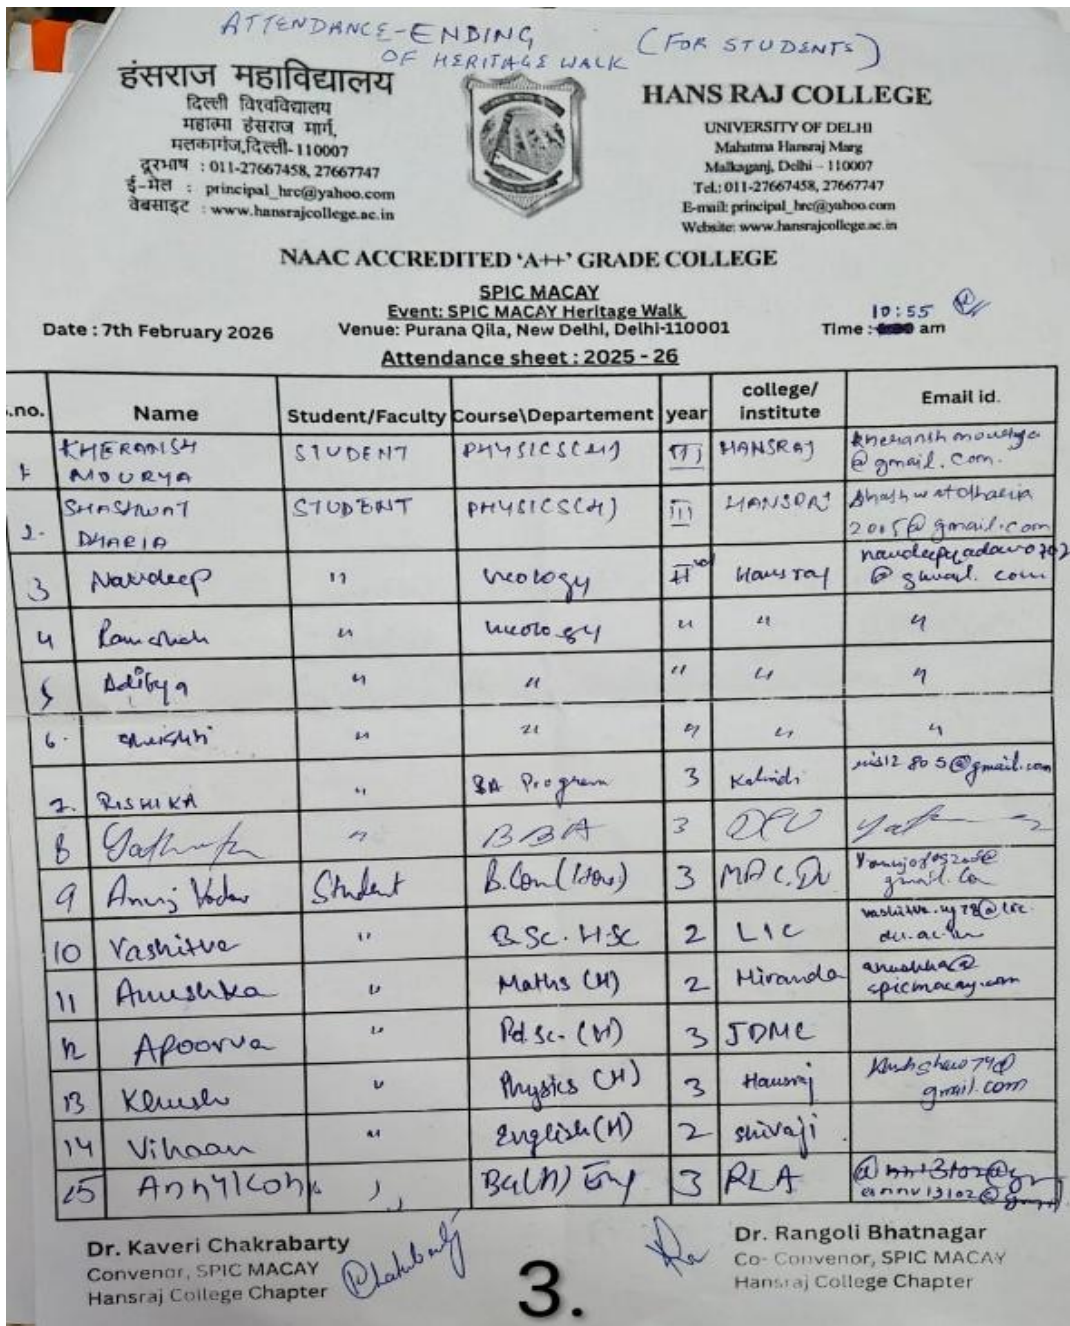 ATTENDANCE-ENDING
OF HERITAGE WALK (FOR STUDENTS)
हंसराज महाविद्यालय
दिल्ली विश्वविद्यालय
महात्मा हंसराज मार्ग,
मलकागंज,दिल्ली-110007
दूरभाष : 011-27667458, 27667747
ई-मेल : principal_hrc@yahoo.com
वेबसाइट : www.hansrajcollege.ac.in
HANS RAJ COLLEGE
UNIVERSITY OF DELHI
Mahatma Hansraj Marg
Malkaganj, Delhi – 110007
Tel.: 011-27667458, 27667747
E-mail: principal_hrc@yahoo.com
Website: www.hansrajcollege.ac.in
NAAC ACCREDITED ‘A++’ GRADE COLLEGE
SPIC MACAY
Event: SPIC MACAY Heritage Walk
Date : 7th February 2026 Venue: Purana Qila, New Delhi, Delhi-110001 Time : 10:55 am
Attendance sheet : 2025 - 26
.no. Name Student/Faculty Course\Departement year college/ institute Email id.
1 KHERANSH MOURYA STUDENT PHYSICS(H) III HANSRAJ kheranshmourya @gmail.com.
2. SHASHWAT DHARIA STUDENT PHYSICS(H) III HANSRAJ shashwatdharia 2005@gmail.com
3 Navdeep " II Hansraj @gmail.com
4 " " " "
5 Aditya " " " " "
6. " " " " "
7. RISHIKA " BA Program 3 Kalindi @gmail.com
8 " BBA 3
9 Anuj Yadav Student B.Com (Hons) 3 MAC, DU
10 Vashitva " B.Sc. H.Sc 2 LIC
11 Anushka " Maths (H) 2 Miranda anushka@ spicmacay.com
12 Apoorva " Pol.Sc. (H) 3 JDMC
13 Khush " Physics (H) 3 Hansraj gmail.com
14 Vihaan " English (H) 2 Shivaji
15 " BA(H) Eng 3 RLA
Dr. Kaveri Chakrabarty
Convenor, SPIC MACAY
Hansraj College Chapter
Chakrabarty
3.
Dr. Rangoli Bhatnagar
Co- Convenor, SPIC MACAY
Hansraj College Chapter